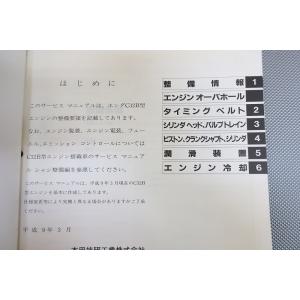 はじめに
このサービス マニュアルは、ホンダC32B型
エンジンの整備要領を記載してあります。
なお、エンジン脱着、エンジン電装、フュー
ル、エミッション コントロールについては
C32B型エンジン搭載車のサービス マニュア
ル シャシ整備編を参照してください。
このサービス マニュアルは、平成9年3月現在のC32B
型エンジンを基本に作成してあります。
仕様変更等により実際と異なる場合がありますがご了承
ください。
平成9年3月
本田技研工業株式会社
整備情報 1
エンジン オーバホール
タイミング ベルト 2
シリンダ ヘッド、バルブ トレイン 3
ピストン、クランクシャフト、シリンダ 4
潤滑装置 5
エンジン冷却 6